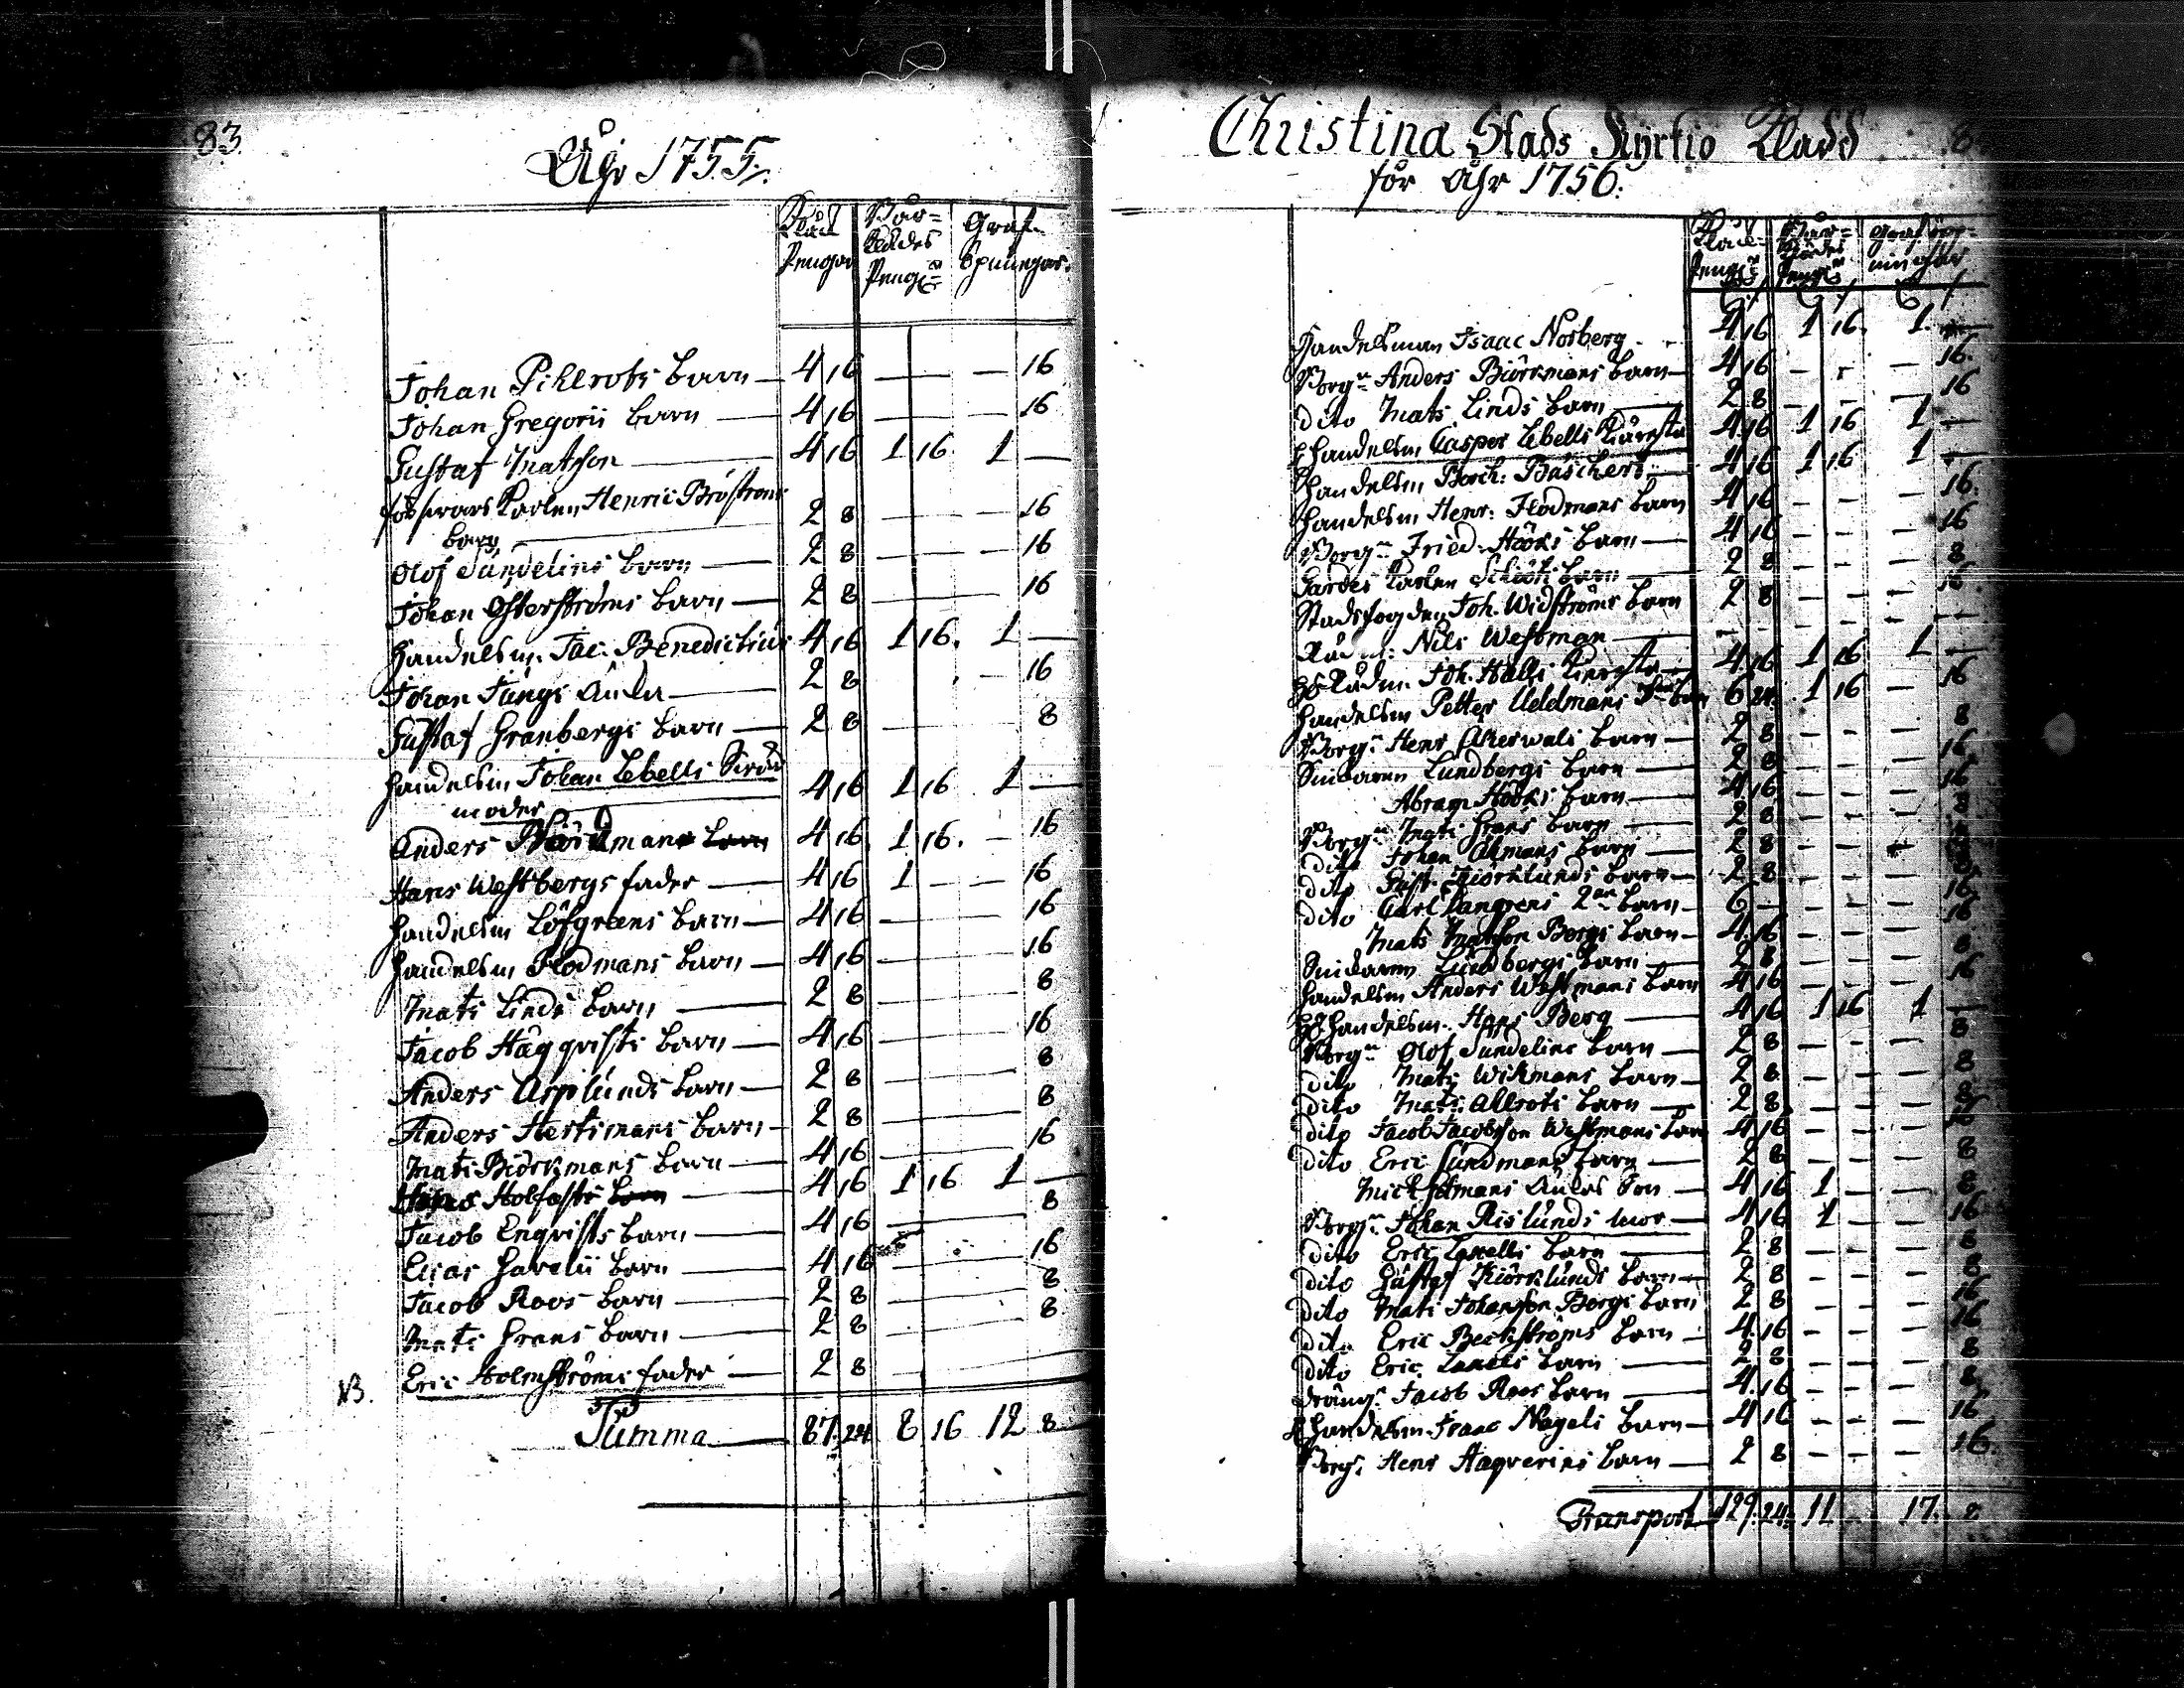 83.
Åhr 1755.
Klåck Pengar
Bår= klädes Peng:r
Graf Öpningar.
Johan Pihlrots barn — 4 16 — — 16
Johan Gregorii barn — 4 16 — — 16
Gustaf Matsson — 4 16 1 16 1 —
försvars Karlen Henric Broströms
barn — 2 8 — — 16
Olof Sundelins barn — 2 8 — — 16
Johan Österströms barn — 2 8 — 16
Handelsm. Jac: Benedictius 4 16 1 16. 1 —
Johan Jungs Änka — 2 8 — 16
Gustaf Granbergs barn — 2 8 — 8
Handelsm Johan Lebells Svär
moder — 4 16 1 16 1 —
Anders Biörkman barn 4 16 1 16. — 16
Hans Westbergs fader — 4 16 1 — — 16
Handelsm Löfgrens barn — 4 16 — 16
Handelsm Flodmans barn — 4 16 — 16
Mats Linds barn — 2 8 — 8
Jacob Häggqvists barn — 4 16 — 16
Anders Asplunds barn — 2 8 — 8
Anders Hertsmans barn — 2 8 — 8
Mats Biörkmans barn — 4 16 — 16
Holfasts barn — 4 16 1 16 1 —
Jacob Enqvists barn — 4 16 — 8
Elias Havelii barn — 4 16 — 16
Jacob Roos barn — 2 8 — 8
Mats Grans barn — 2 8 — 8
NB. Eric Holmströms fader — 2 8 —
Summa — 87 24 8 16 12 8
Christina Stads Kyrkio Klåck
för Åhr 1756.
Klåck Peng:r
Bår= klädes Peng:r
Graf öp= ningar
Handelsman Isaac Norberg 4 16 1 16. 1. —
Borg:n Anders Biörkmans barn — 4 16 — — 16.
dito Mats Linds barn — 2 8 — — 16
Handelsm Casper Lebells Käresta 4 16 1 16 1 —
Handelsm Borch: Baschert — 4 16 1 16 1 —
Handelsm Henr: Flodmans barn 4 16 — — — 16.
Borg:n Fried. Hööks barn — 4 16 — — — 16
Gardes Karlen Schiöts barn — 2 8 — — — 8
Stadsfogden Joh. Widströms barn 2 8 — — — 16
Rådm: Nils Westman — — — —
Rådm. Joh. Hälls Käresta — 4 16 1 16 1 —
Handelsm Petter Uddmans barn 6 24. 1 16 — 16
Borg:n Henr Åkerwals barn — 2 8 — — — 8
Snickaren Lundbergs barn — 2 8 — — — 16
Abram Hööks barn — 4 16 — — — 16
Borg:n Mats Grans barn — 2 8 — — — 8
dito Johan Åkmans barn — 2 8 — — —
dito Gust. Kiörklunds barn — 2 8 — — — 8
dito Carl Langrens 2:ne barn — 6 — — — — 16
Mats Matsson Bergs barn — 4 16 — — — 16
Snickaren Lundbergs barn — 2 8 — — — 8
Handelsm Anders Westmans barn 4 16 — — — 16
Handelsm. Hans Berg — 4 16 1 16 1 —
Borg:n Olof Sundelins barn — 2 8 — — — 8
dito Mats Wikmans barn — 2 8 — — — 8
dito Mats. Allrots barn — 2 8 — — — 8
dito Jacob Jacobsson Westmans barn 4 16 — — — 16
dito Eric Sundmans barn — 2 8 — — — 8
Mich. Änkas Son — 4 16 1 — — 8
Borg:n Johan Rislunds Mor — 4 16 1 — — 16
dito Eric Lanells barn — 2 8 — — — 8
dito Gustaf Kiörklunds barn — 2 8 — — — 8
dito Mats Johansson Bergs barn 2 8 — — — 16
dito Eric Beckströms barn — 4 16 — — — 16
dito Eric Lanells barn — 2 8 — — — 8
dräng:n Jacob Roos barn — 4 16 — — — 8
Handelsm Isaac Nagels barn — 4 16 — — — 16
Borg:n Henr Hagverins barn — 2 8 — — — 16.
Transport 129. 24. 11 17. 8